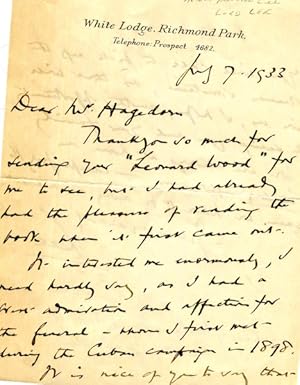 White Lodge, Richmond Park,
Telephone: Prospect 4682.
July 7. 1933
Dear Mr Hagedorn
Thank you so much for
sending your "Leonard Wood" for
me to see, but I had already
had the pleasure of reading the
book when it first came out.
It interested me enormously, I
need hardly say, as I had a
great admiration and affection for
the General – whom I first met
during the Cuban campaign in 1898.
It is nice of you to say that